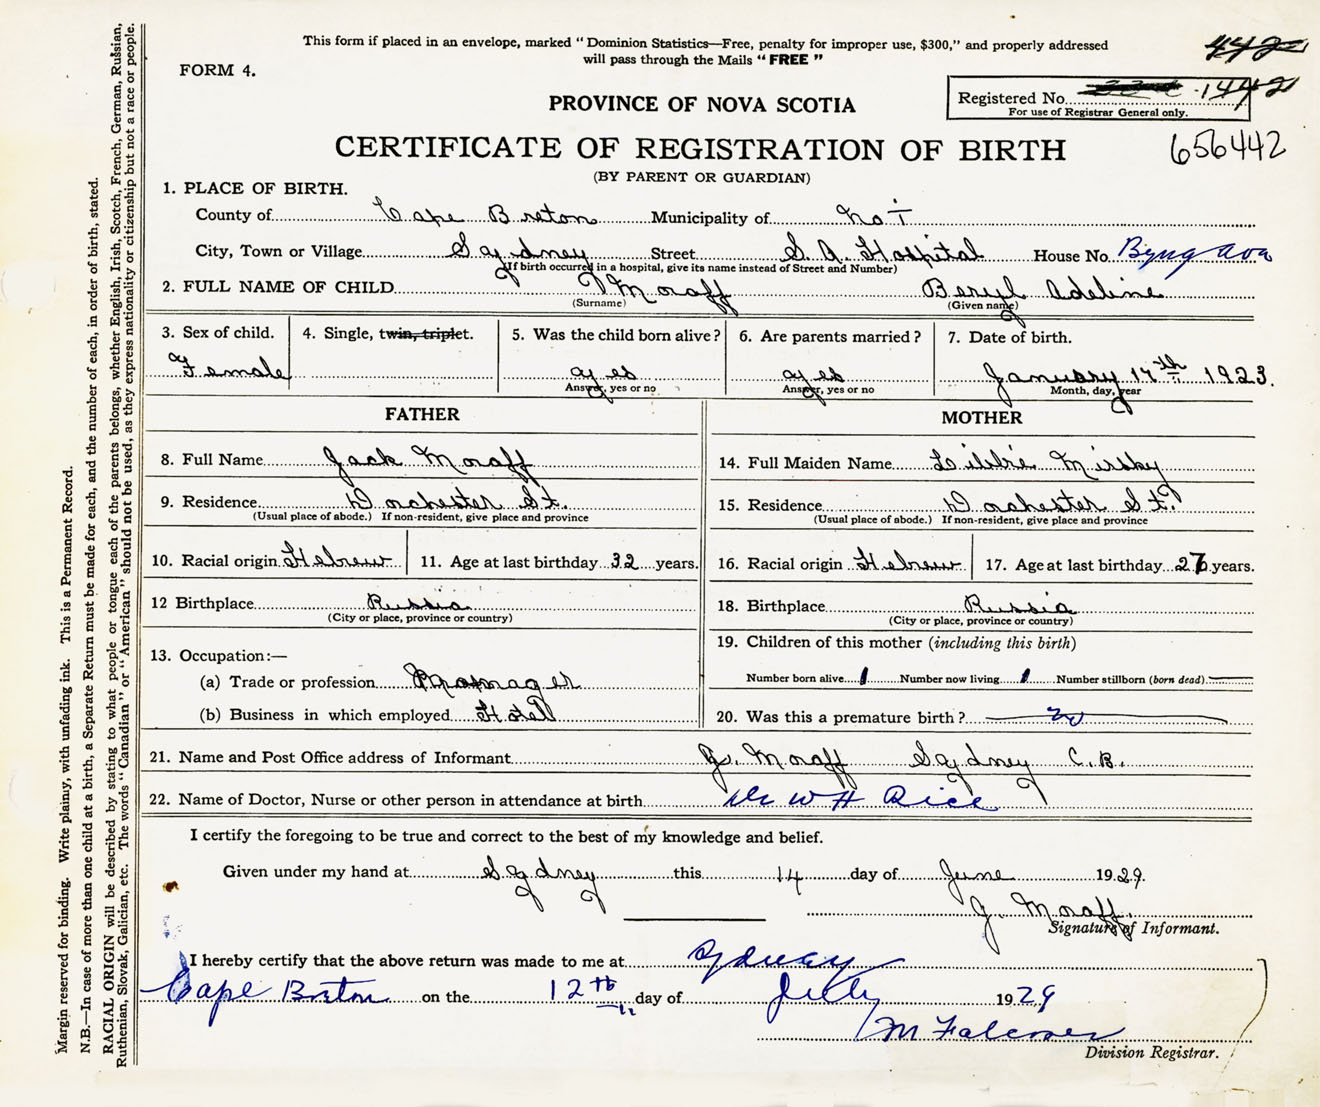 This form if placed in an envelope, marked “Dominion Statistics—Free, penalty for improper use, $300,” and properly addressed
will pass through the Mails “FREE”
442
FORM 4.
PROVINCE OF NOVA SCOTIA
Registered No. 1442
For use of Registrar General only.
CERTIFICATE OF REGISTRATION OF BIRTH
656442
(BY PARENT OR GUARDIAN)
1. PLACE OF BIRTH.
County of Cape Breton Municipality of No 1
City, Town or Village Sydney Street S. A. Hospital House No. Byng Ave
(If birth occurred in a hospital, give its name instead of Street and Number)
2. FULL NAME OF CHILD Moraff Beryl Adeline
(Surname) (Given name)
3. Sex of child. 4. Single, twin, triplet. 5. Was the child born alive? 6. Are parents married? 7. Date of birth.
Female yes yes January 17th 1923.
Answer, yes or no Answer, yes or no Month, day, year
FATHER MOTHER
8. Full Name Jack Moraff 14. Full Maiden Name Libbie Mirsky
9. Residence Dorchester St. 15. Residence Dorchester St.
(Usual place of abode.) If non-resident, give place and province (Usual place of abode.) If non-resident, give place and province
10. Racial origin Hebrew 11. Age at last birthday 32 years. 16. Racial origin Hebrew 17. Age at last birthday 26 years.
12 Birthplace Russia 18. Birthplace Russia
(City or place, province or country) (City or place, province or country)
13. Occupation:— 19. Children of this mother (including this birth)
(a) Trade or profession Manager Number born alive 1 Number now living 1 Number stillborn (born dead)
(b) Business in which employed Hotel 20. Was this a premature birth? no
21. Name and Post Office address of Informant J. Moraff Sydney C.B.
22. Name of Doctor, Nurse or other person in attendance at birth Dr W H Rice
I certify the foregoing to be true and correct to the best of my knowledge and belief.
Given under my hand at Sydney this 14 day of June 1929.
J. Moraff.
Signature of Informant.
I hereby certify that the above return was made to me at Sydney
Cape Breton on the 12th day of July 1929
M Falconer
Division Registrar.
Margin reserved for binding. Write plainly, with unfading ink. This is a Permanent Record.
N.B.—In case of more than one child at a birth, a Separate Return must be made for each, and the number of each, in order of birth, stated.
RACIAL ORIGIN will be described by stating to what people or tongue each of the parents belongs, whether English, Irish, Scotch, French, German, Russian,
Ruthenian, Slovak, Galician, etc. The words “Canadian” or “American” should not be used, as they express nationality or citizenship but not a race or people.